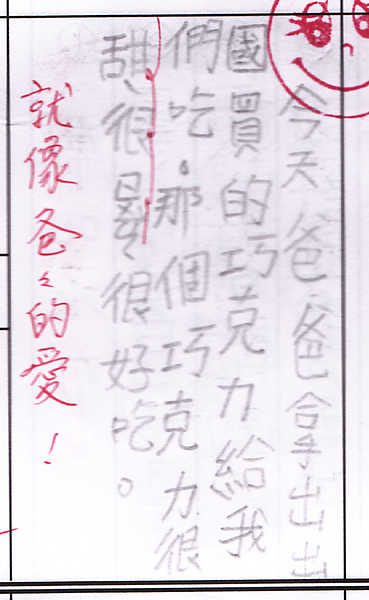 今天爸爸拿出出
國買的巧克力給我
們吃。那個巧克力很
甜、很、很好吃。
就像爸々的愛！